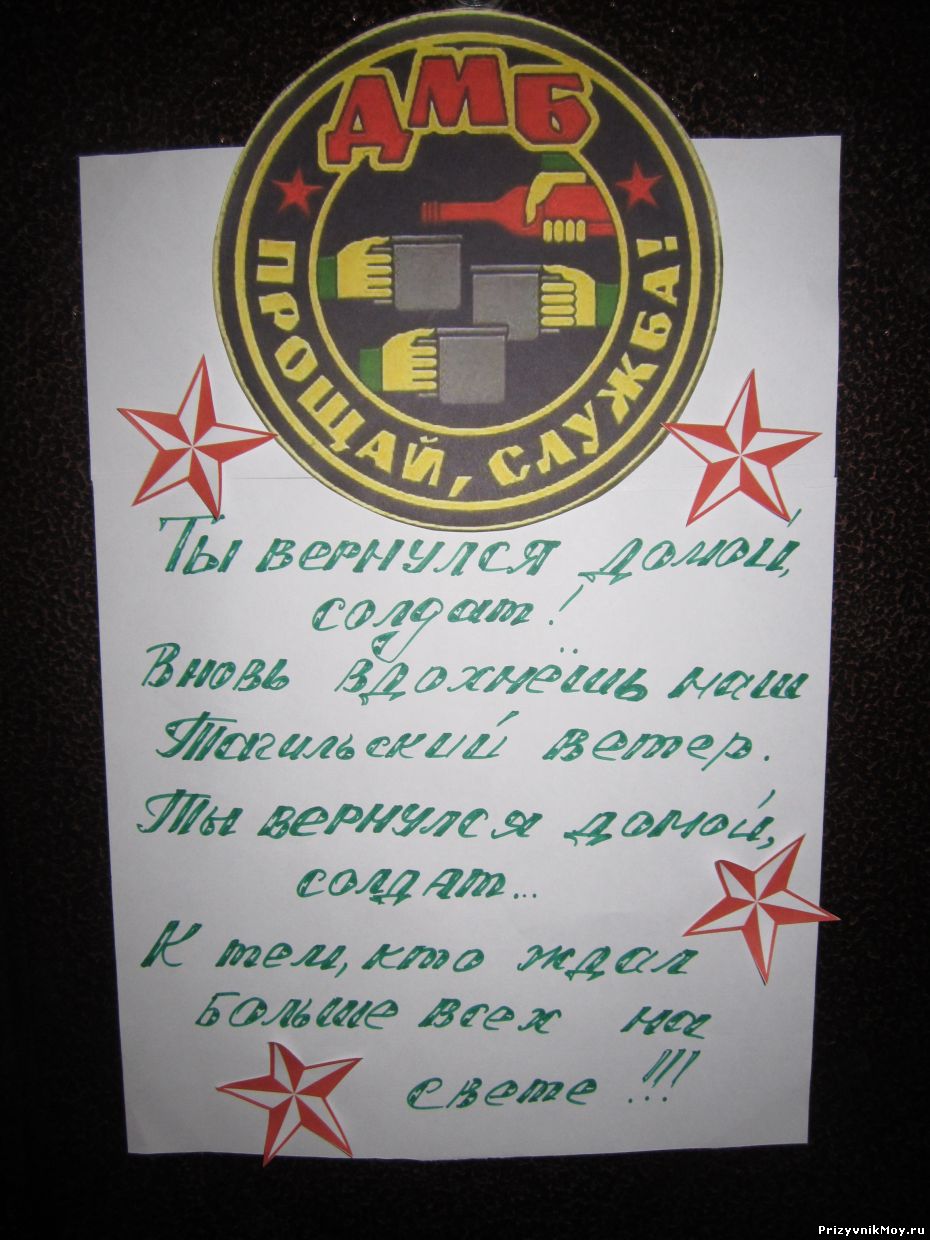 ДМБ
ПРОЩАЙ, СЛУЖБА!
Ты вернулся домой,
солдат!
Вновь вдохнёшь наш
Тагильский ветер.
Ты вернулся домой,
солдат...
К тем, кто ждал
больше всех на
свете!!!
PrizyvnikMoy.ru